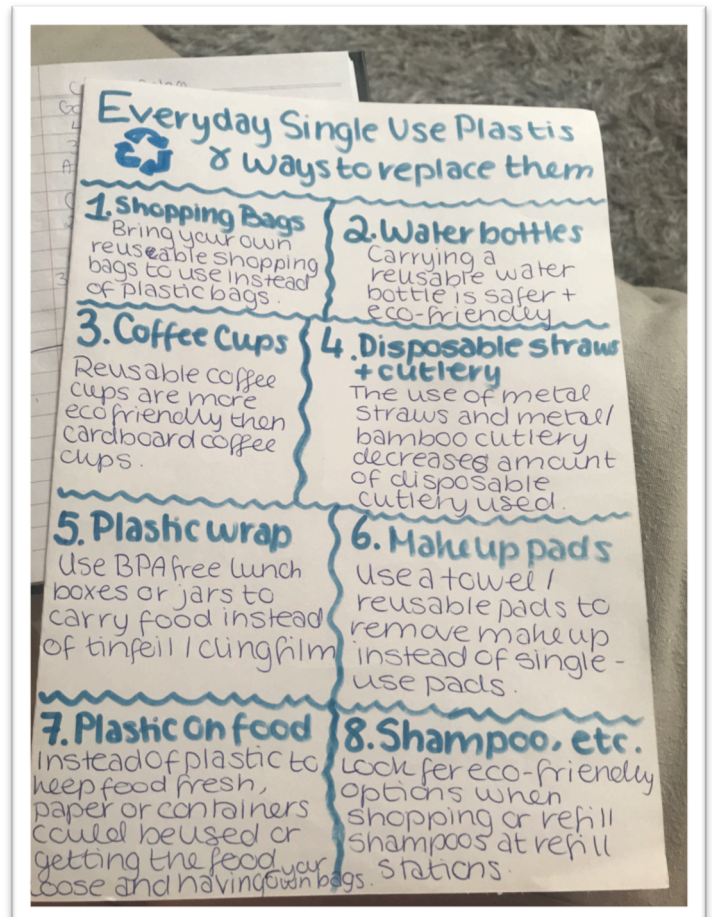 Everyday Single Use Plastis
& Ways to replace them
1. Shopping Bags
Bring your own
reuseable shopping
bags to use instead
of plastic bags.
2. Water bottles
Carrying a
reusable water
bottle is safer +
eco-friendly
3. Coffee Cups
Reusable coffee
cups are more
ecofriendly then
cardboard coffee
cups.
4. Disposable straws
+ cutlery
The use of metal
straws and metal/
bamboo cutlery
decreases amount
of disposable
cutlery used.
5. Plastic wrap
Use BPA free lunch
boxes or jars to
carry food instead
of tinfoil / clingfilm
6. Makeup pads
use a towel /
reusable pads to
remove makeup
instead of single-
use pads.
7. Plastic on food
Instead of plastic to
keep food fresh,
paper or containers
could be used or
getting the food
loose and having your own bags.
8. Shampoo, etc.
Look for eco-friendly
options when
shopping or refill
shampoos at refill
stations.